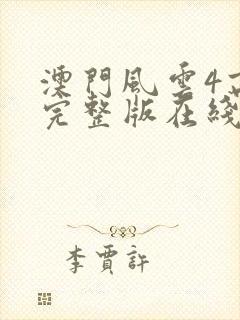 澳門風雲4
完整版在綫
李賈許